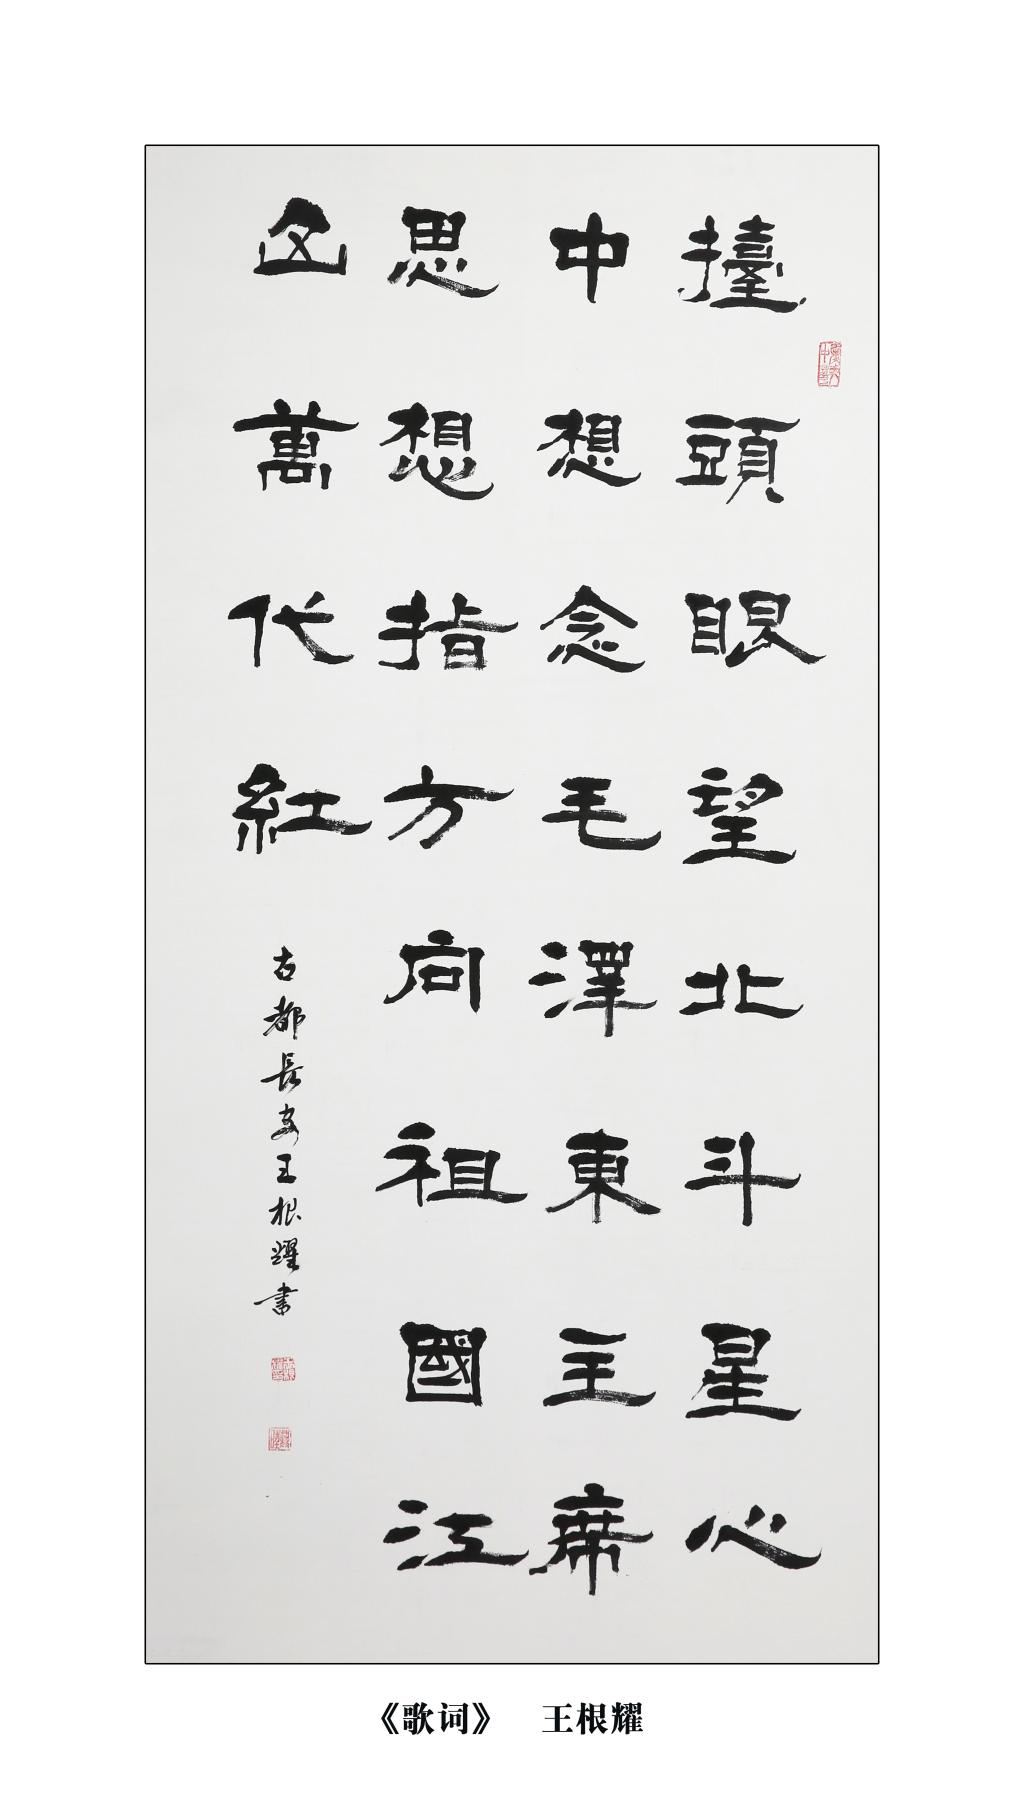 擡頭眼望北斗星心
中想念毛澤東主席
思想指方向祖國江
山萬代紅
古都長安王根耀書
《歌词》 王根耀